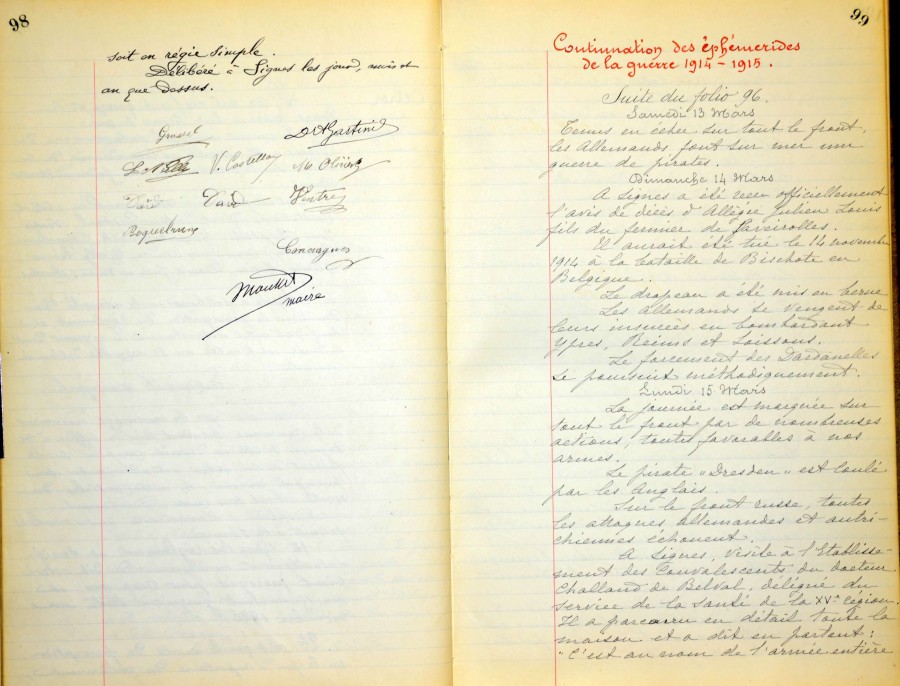 98
soit en régie simple.
Délibéré à Signes les jour, mois et
an que dessus.
Dr Gastinel
V. Castellan
M. Olivier
Ventre
Roquebrune
Maunet
maire
99
Continnation des éphémerides
de la guerre 1914-1915.
Suite du folio 96.
Samedi 13 Mars
Tenus en échec sur tout le front,
les Allemands font sur mer une
guerre de pirates.
Dimanche 14 Mars
A Signes a été reçu officiellement
l'avis de décès d'Allègre Julien Louis
fils du fermier de
Il aurait été tué le 14 novembre
1914 à la bataille de Bischote en
Belgique.
Le drapeau a été mis en berne
Les allemands se vengent de
leurs insuccès en bombardant
Ypres, Reims et Soissons.
Le forcement des Dardanelles
se poursuit méthodiquement.
Lundi 15 Mars
La journée est marquée sur
tout le front par de nombreuses
actions, toutes favorables à nos
armes.
Le pirate "Dresden" est coulé
par les Anglais.
Sur le front russe, toutes
les attaques allemandes et autri-
chiennes échouent.
A Signes, visite à l'Etablisse-
ment des Convalescents, du docteur
Challand de Belval, délégué du
service de la santé de la XVe légion.
Il a parcouru en détail toute la
maison et a dit en partant:
"C'est au nom de l'armée entière